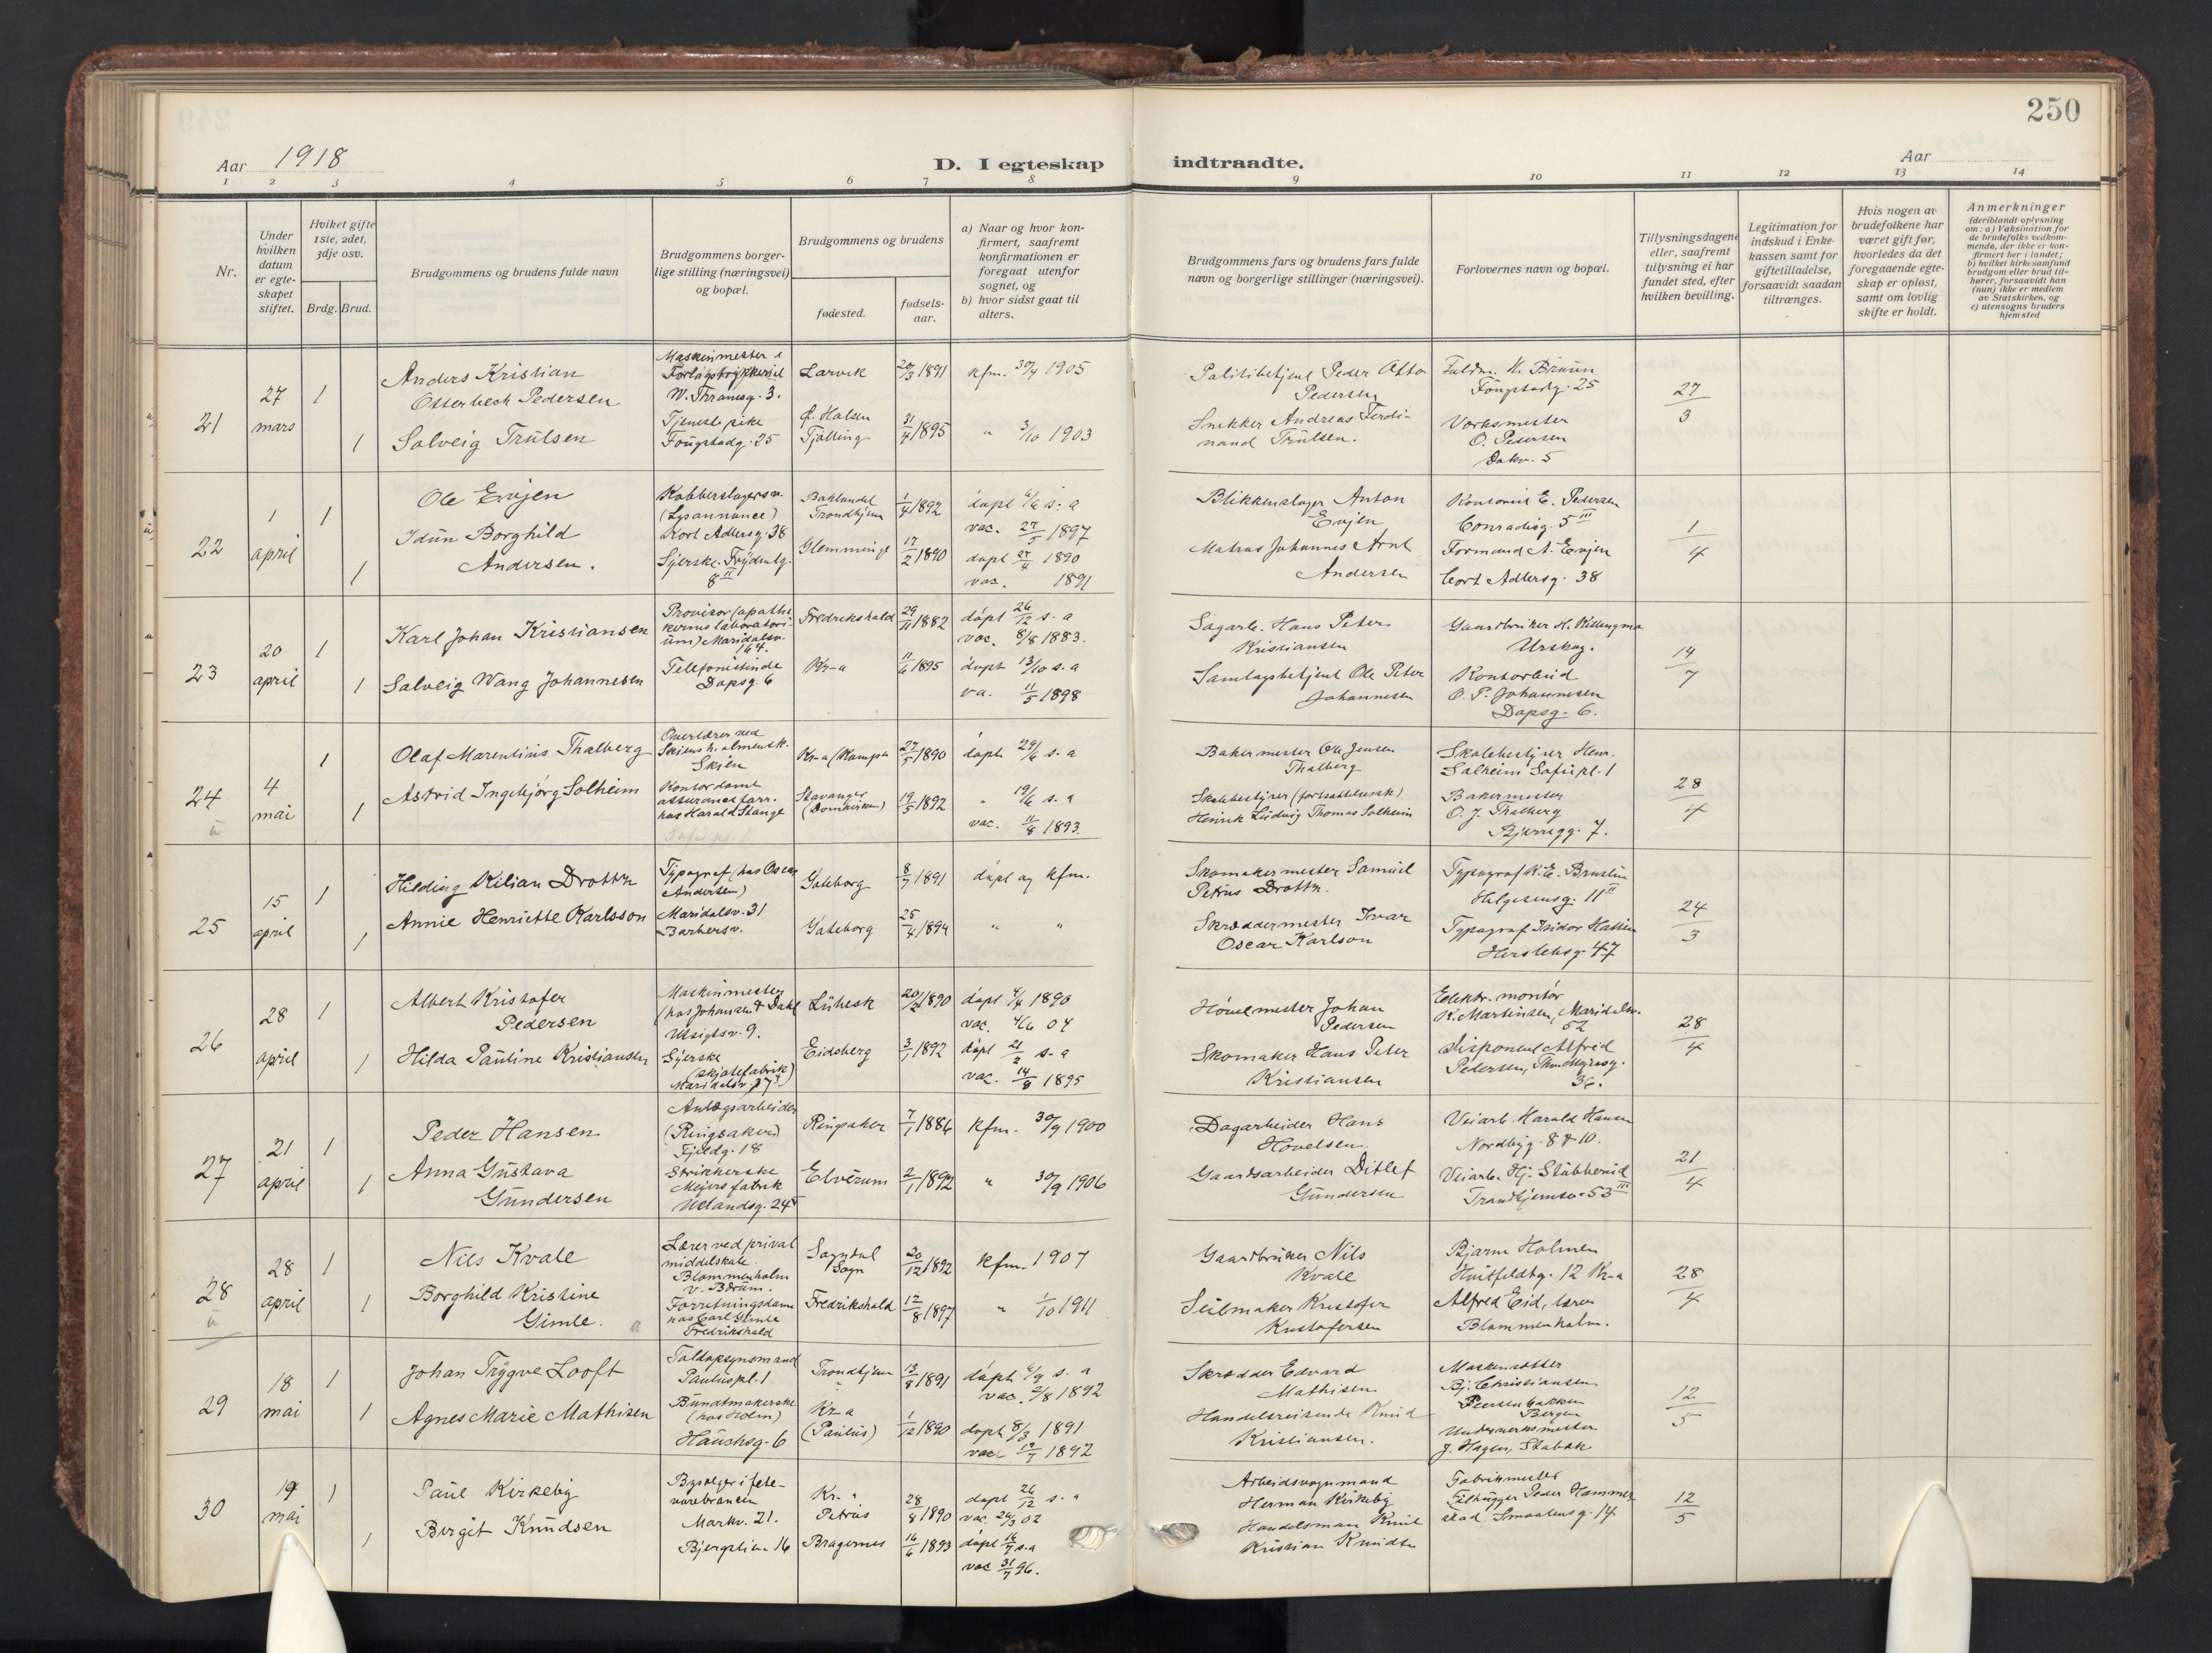 250
Aar 1918
D. I egteskap indtraadte.
Aar
1 2 3 4 5 6 7 8 9 10 11 12 13 14
Nr.
Under hvilken datum er egte-skapet stiftet.
Hvilket gifte 1ste, 2det, 3dje osv.
Brdg. Brud.
Brudgommens og brudens fulde navn
Brudgommens borger-
lige stilling (næringsvei)
og bopæl.
Brudgommens og brudens
fødested.
fødsels-
aar.
a) Naar og hvor kon-
firmert, saafremt
konfirmationen er
foregaat utenfor
sognet, og
b) hvor sidst gaat til
alters.
Brudgommens fars og brudens fars fulde
navn og borgerlige stillinger (næringsvei).
Forlovernes navn og bopæl.
Tillysningsdagene
eller, saafremt
tillysning ei har
fundet sted, efter
hvilken bevilling.
Legitimation for
indskud i Enke-
kassen samt for
giftetilladelse,
forsaavidt saadan
tiltrænges.
Hvis nogen av
brudefolkene har
været gift før,
hvorledes da det
foregaaende egte-
skap er opløst,
samt om lovlig
skifte er holdt.
Anmerkninger
(deriblandt oplysning
om: a) Vaksination for
de brudefolks vedkom-
mende, der ikke er kon-
firmert her i landet;
b) hvilket kirkesamfund
brudgom eller brud til-
hører, forsaavidt han
(hun) ikke er medlem
av Statskirken, og
c) utensogns bruders
hjemsted
21
27
mars
1
1
Anders Kristian
Otterbech Pedersen
Solveig Trulsen
Maskinmester i
W. Thranesg. 3.
Tjenestepike
Fougstadg. 25
Larvik
Tjølling
20/3 1891
31/4 1895
kfm. 30/4 1905
" 3/10 1903
Politibetjent Peder Otto
Pedersen
Snekker Andreas Ferdi-
nand Trulsen.
Fuldm. K. Bruun
Fougstadg. 25
Verksmester
O. Pedersen
Dakv. 5
27/3
22
1
april
1
1
Ole Evjen
Idun Borghild
Andersen.
Kobberslagersv.
(Lysannonce)
Kort Adlersg. 38
Syerske. Frydenlg.
8 II
Baklandet
Trondhjem
Glemminge
1/4 1892
17/2 1890
døpt 6/6 s. a
vac. 27/5 1897
døpt 27/4 1890
vac. 1891
Blikkenslager Anton
Evjen
Matros Johannes Arnt
Andersen
Kontorist E. Pedersen
Conradisg. 5 III
Formand A. Evjen
Cort Adlersg. 38
1/4
23
20
april
1
1
Karl Johan Kristiansen
Solveig Wang Johannesen
Provisor (apothe
kernes laboratori-
um) Maridalsv.
164.
Telefonistinde
Dapsg. 6
Fredrikshald
Kr-a
29/11 1882
11/6 1895
døpt 26/12 s. a
vac. 8/8 1883.
døpt 13/10 s. a
va. 11/5 1898
Sagarb. Hans Peter
Kristiansen
Samlagsbetjent Ole Peter
Johannesen
Gaardbruker H. Killingmo
Urskog.
Kontorbud
O. P. Johannesen
Dapsg. 6.
14/7
24
4
mai
1
1
Olaf Marentius Thalberg
Astrid Ingebjørg Solheim
Overlærer ved
Skiens h. almensk.
Skien
Kontordame
assuranceforr.
hos Harald Stange
Kr-a (Kampen
Stavanger
(Domkirken)
27/5 1890
19/5 1892
døpt 29/6 s. a
" 19/6 s. a
vac. 11/8 1893.
Bakermester Ole Jensen
Thalberg
Skolebestyrer (fortsættelsessk)
Henrik Ludvig Thomas Solheim
Skolebestyrer Henr.
Solheim Sofiepl. 1
Bakermester
O. J. Thalberg
Bjerregg. 7.
28/4
25
15
april
1
1
Hilding Kilian Drottz
Annie Henriette Karlsson
Typograf (hos Oscar
Andersen)
Maridalsv. 31
Barbersv.
Gøteborg
Gøteborg
8/7 1891
25/4 1894
døpt og kfm.
" "
Skomakermester Samuel
Petrus Drottz.
Skræddermester Ivar
Oscar Karlson
Typograf K. E. Bruslin
Helgesensg. 11 II
Typograf Isidor Hallin
Herslebsg. 47
24/3
26
28
april
1
1
Albert Kristofer
Pedersen
Hilda Pauline Kristiansen
Maskinmester
(hos Johansen & Dahl
Utsigtsv. 9.
Syerske
(skjortefabrik)
Maridalsv. 37
Lübeck
Eidsberg
20/2 1890
3/1 1892
døpt 4/4 1890
vac. 4/6 04
døpt 21/2 s. a
vac. 14/8 1895
Høvlemester Johan
Pedersen
Skomaker Hans Peter
Kristiansen
Elektr. montør
K. Martinsen, Maridalsv.
52
Disponent Alfred
Pedersen, Thv. Meyersg.
36.
28/4
27
21
april
1
1
Peder Hansen
Anna Gustava
Gundersen
Anlægsarbeider
(Ringsaker)
Fjeldg. 18
Strikkerske
Meyers fabrik
Uelandsg. 24
Ringsaker
Elverum
7/1 1886
2/1 1892
kfm. 30/9 1900
" 30/9 1906
Dagarbeider Hans
Hovelsen
Gaardsarbeider Ditlef
Gundersen
Veiarb. Harald Hansen
Nordbyg. 8 & 10.
Veiarb. Hj. Stubberud
Trondhjemsv. 53 III
21/4
28
28
april
1
1
Nils Kvale
Borghild Kristine
Gimle.
Lærer ved privat
middelskole.
Blommenholm
v. Bærum.
Forretningsdame
hos Carl Gimle
Fredrikshald
Sogndal
Sogn
Fredrikshald
20/12 1892
12/8 1897
kfm. 1907
" 1/10 1911
Gaardbruker Nils
Kvale
Seilmaker Kristofer
Kristofersen
Bjarne Holmen
Huitfeldtg. 12 Kr-a
Alfred Eid, lærer
Blommenholm.
28/4
29
18
mai
1
1
Johan Trygve Looft
Agnes Marie Mathisen
Toldopsynsmand
Pauluspl. 1
Buntmakerske
(hos Holm)
Hauchsg. 6
Trondhjem
Kr-a
(Paulus)
13/8 1891
1/12 1890
døpt 6/9 s. a
vac. 2/8 1892
døpt 8/3 1891
vac. 19/7 1892
Skrædder Edvard
Mathisen
Handelsreisende Knud
Kristiansen.
Maskinsetter
Bj. Christiansen
Bergen
Underverksmester
J. Hagen, Stabæk
12/5
30
19
mai
1
1
Paul Kirkeby
Birgit Knudsen
Bysælger i fete-
varebranchen
Markv. 21.
Bjergslien 16
Kr. a
Petrus
Bragernes
28/8 1890
16/6 1893
døpt 26/12 s. a
vac. 24/3 02
døpt 16/7 s. a
vac 31/7 96.
Arbeidsvognmand
Herman Kirkeby
Handelsman Knut
Kristian Knudsen
Fabrikmester
Filhugger Peder Hammer-
stad, Smaalensg. 14
12/5